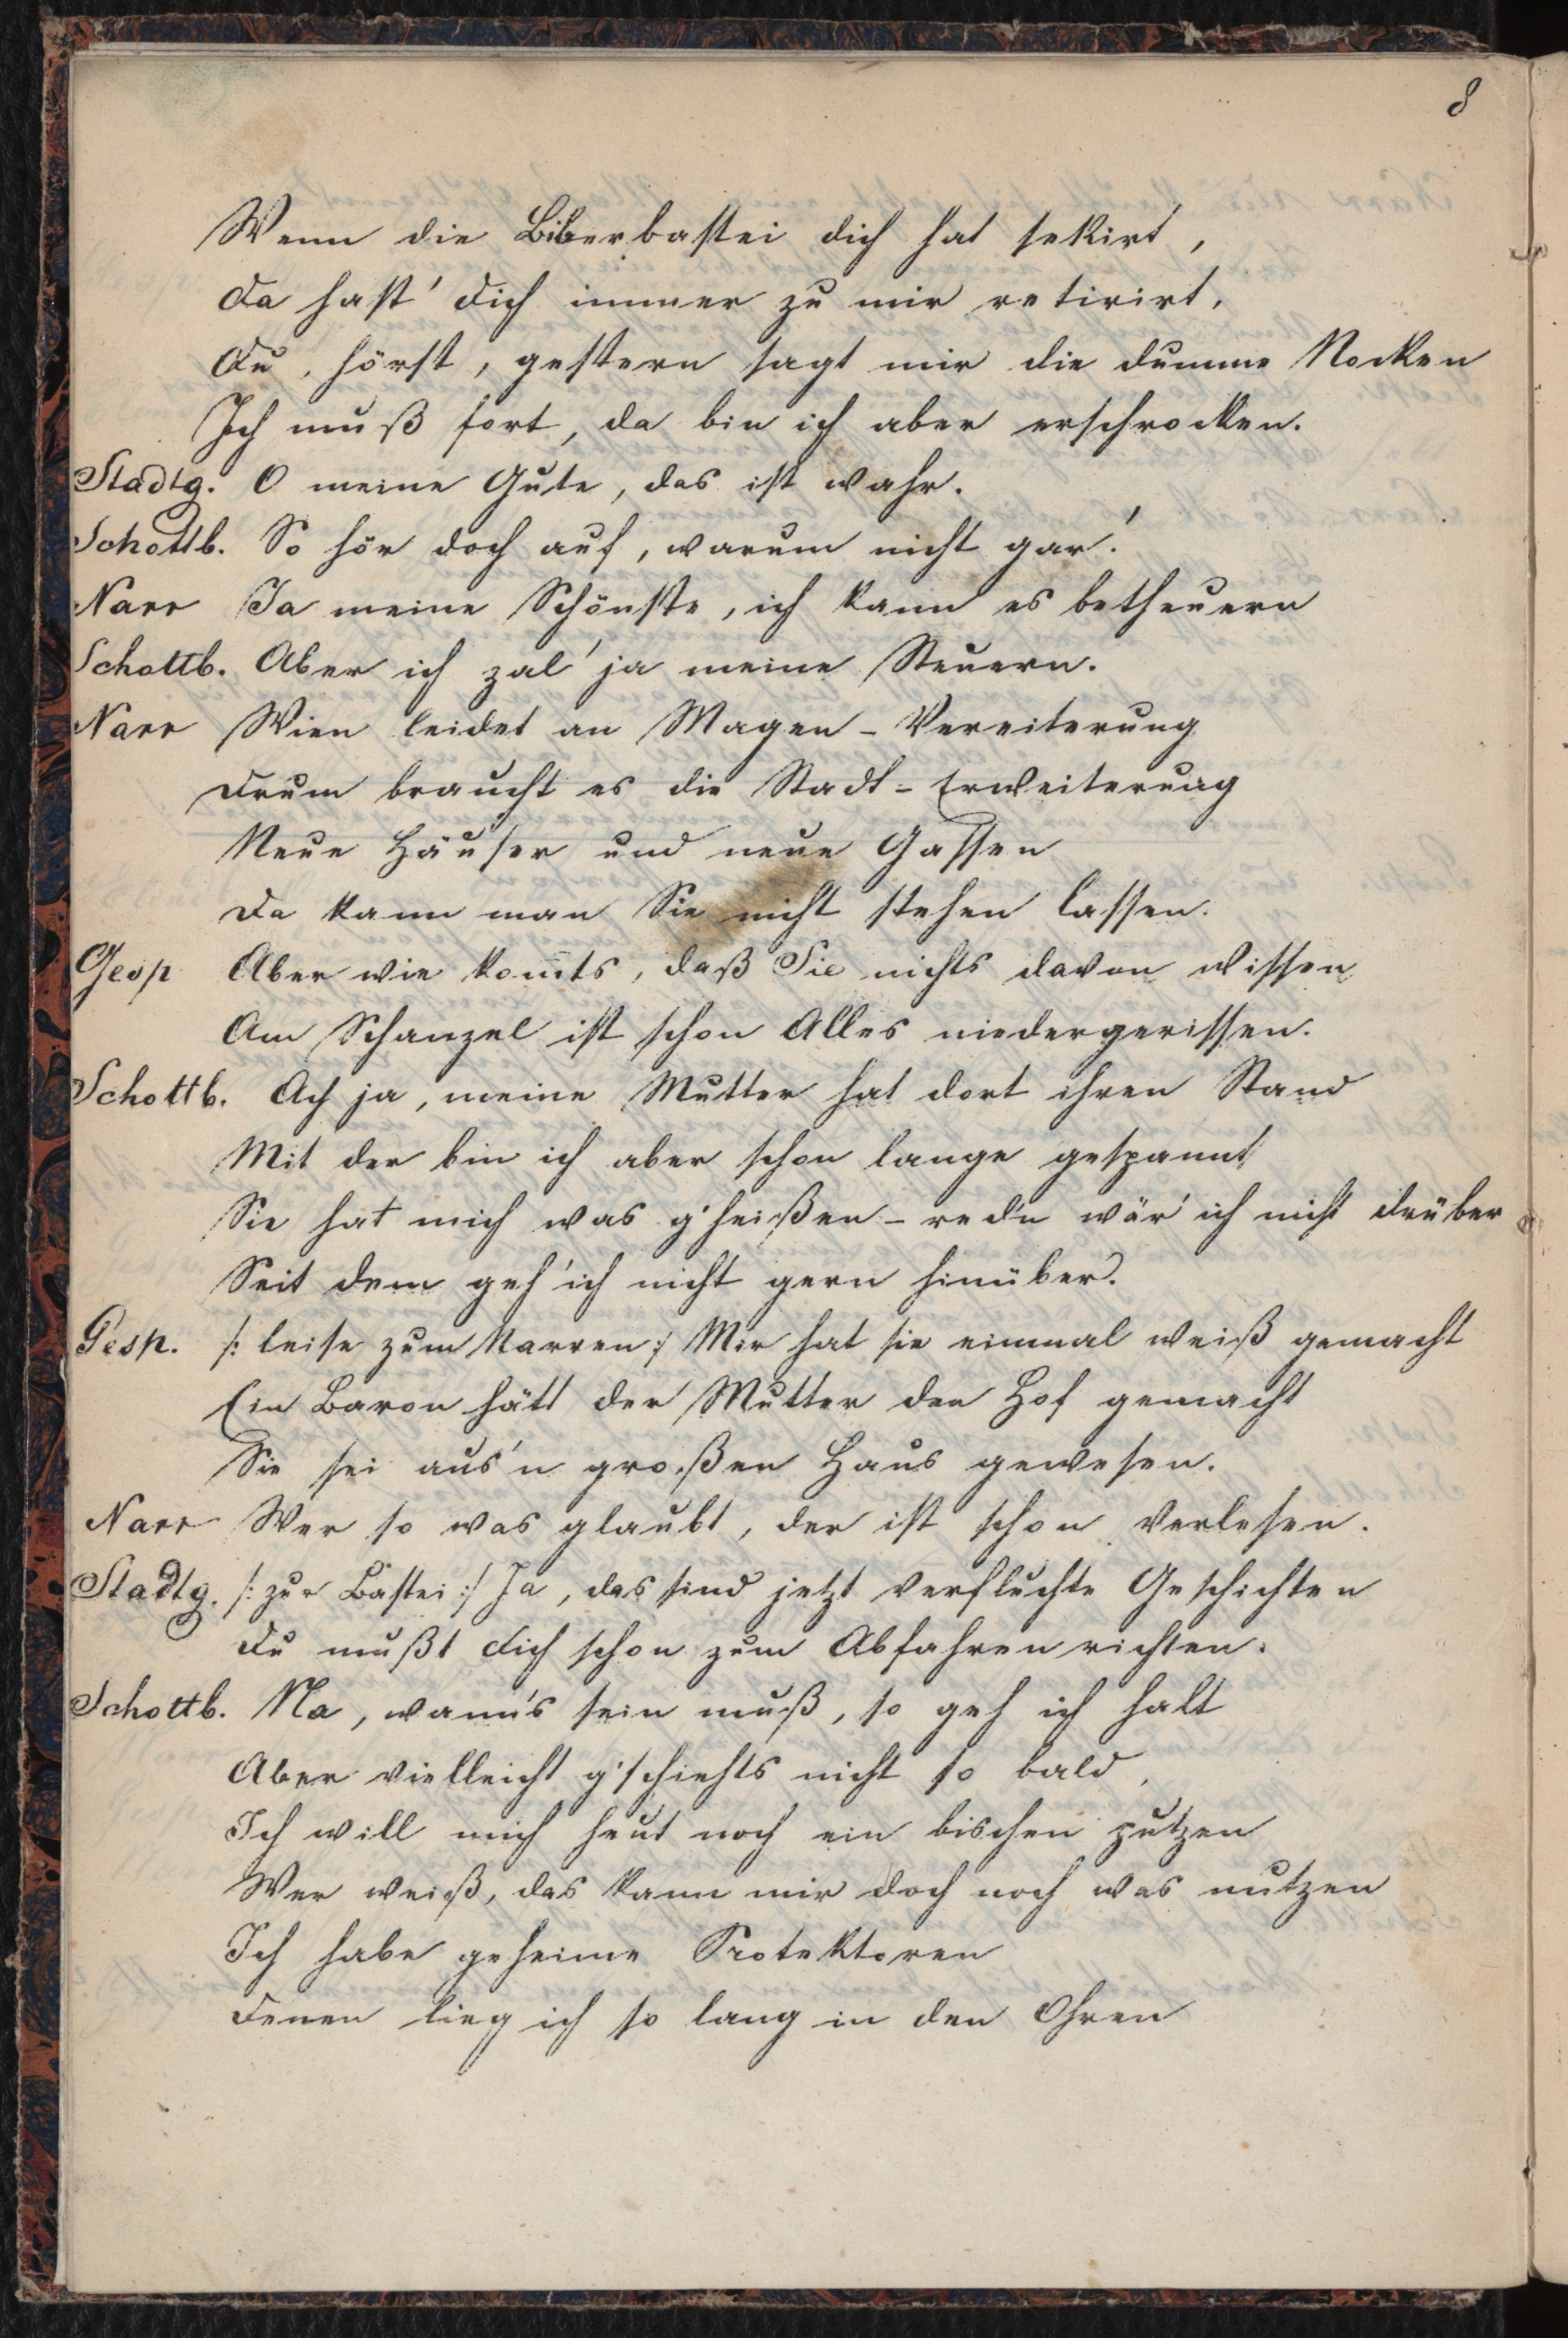 8
Wenn die Biberbastei dich hat sekirt,
Da hast' dich immer zu mir retirirt.
Du, hörst, gestern sagt mir die dumme Nocken
Ich muß fort, da bin ich aber erschrocken.
Stadtg. O meine Gute, das ist wahr.
Schottb. So hör doch auf, warum nicht gar!
Narr Ja meine Schönste, ich kann es betheuern
Schottb. Aber ich zal' ja meine Steuern.
Narr Wien leidet an Magen-Vereiterung
Drum braucht es die Stadt-Erweiterung
Neue Häuser und neue Gassen
Da kann man Sie nicht stehen lassen.
Gesp Aber wie kom̅ts, daß Sie nichts davon wissen
Am Schanzel ist schon Alles niedergerissen.
Schottb. Ach ja, meine Mutter hat dort ihren Stand
Mit der bin ich aber schon lange gespannt
Sie hat mich was g'heißen - red'n wär' ich nicht drüber
Seit dem geh' ich nicht gern hinüber.
Gesp. /: leise zum Narren :/ Mir hat sie einmal weiß gemacht
Ein Baron hätt der Mutter den Hof gemacht
Sie sei aus'n großen Haus gewesen.
Narr Wer so was glaubt, der ist schon verlesen.
Stadtg. /: zur Bastei :/ Ja, das sind jetzt verfluchte Geschichten
Du mußt dich schon zum Abfahren richten.
Schottb. Na, wann's sein muß, so geh ich halt
Aber vielleicht g'schiehts nicht so bald,
Ich will mich heut noch ein bischen putzen
Wer weiß, das kann mir doch noch was nutzen
Ich habe geheime Protektoren
Denen lieg ich so lang in den Ohren